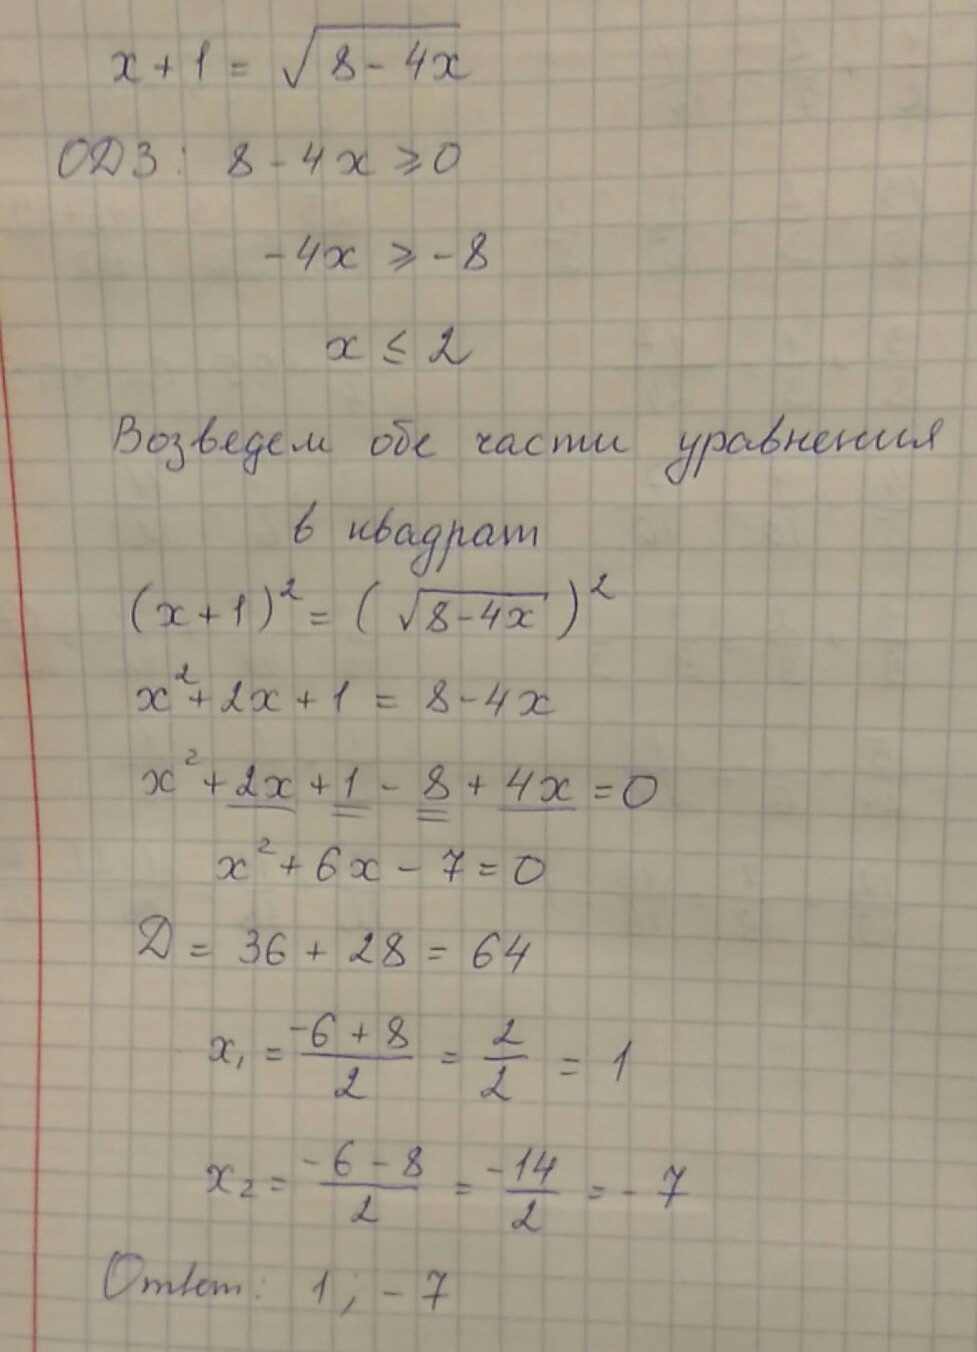 x + 1 = √(8 - 4x)
ОДЗ: 8 - 4x ⩾ 0
-4x ⩾ -8
x ≤ 2
Возведем обе части уравнения
в квадрат
(x + 1)² = (√(8 - 4x))²
x² + 2x + 1 = 8 - 4x
x² + 2x + 1 - 8 + 4x = 0
x² + 6x - 7 = 0
Д = 36 + 28 = 64
x₁ = (-6 + 8)/2 = 2/2 = 1
x₂ = (-6 - 8)/2 = -14/2 = -7
Ответ: 1; -7